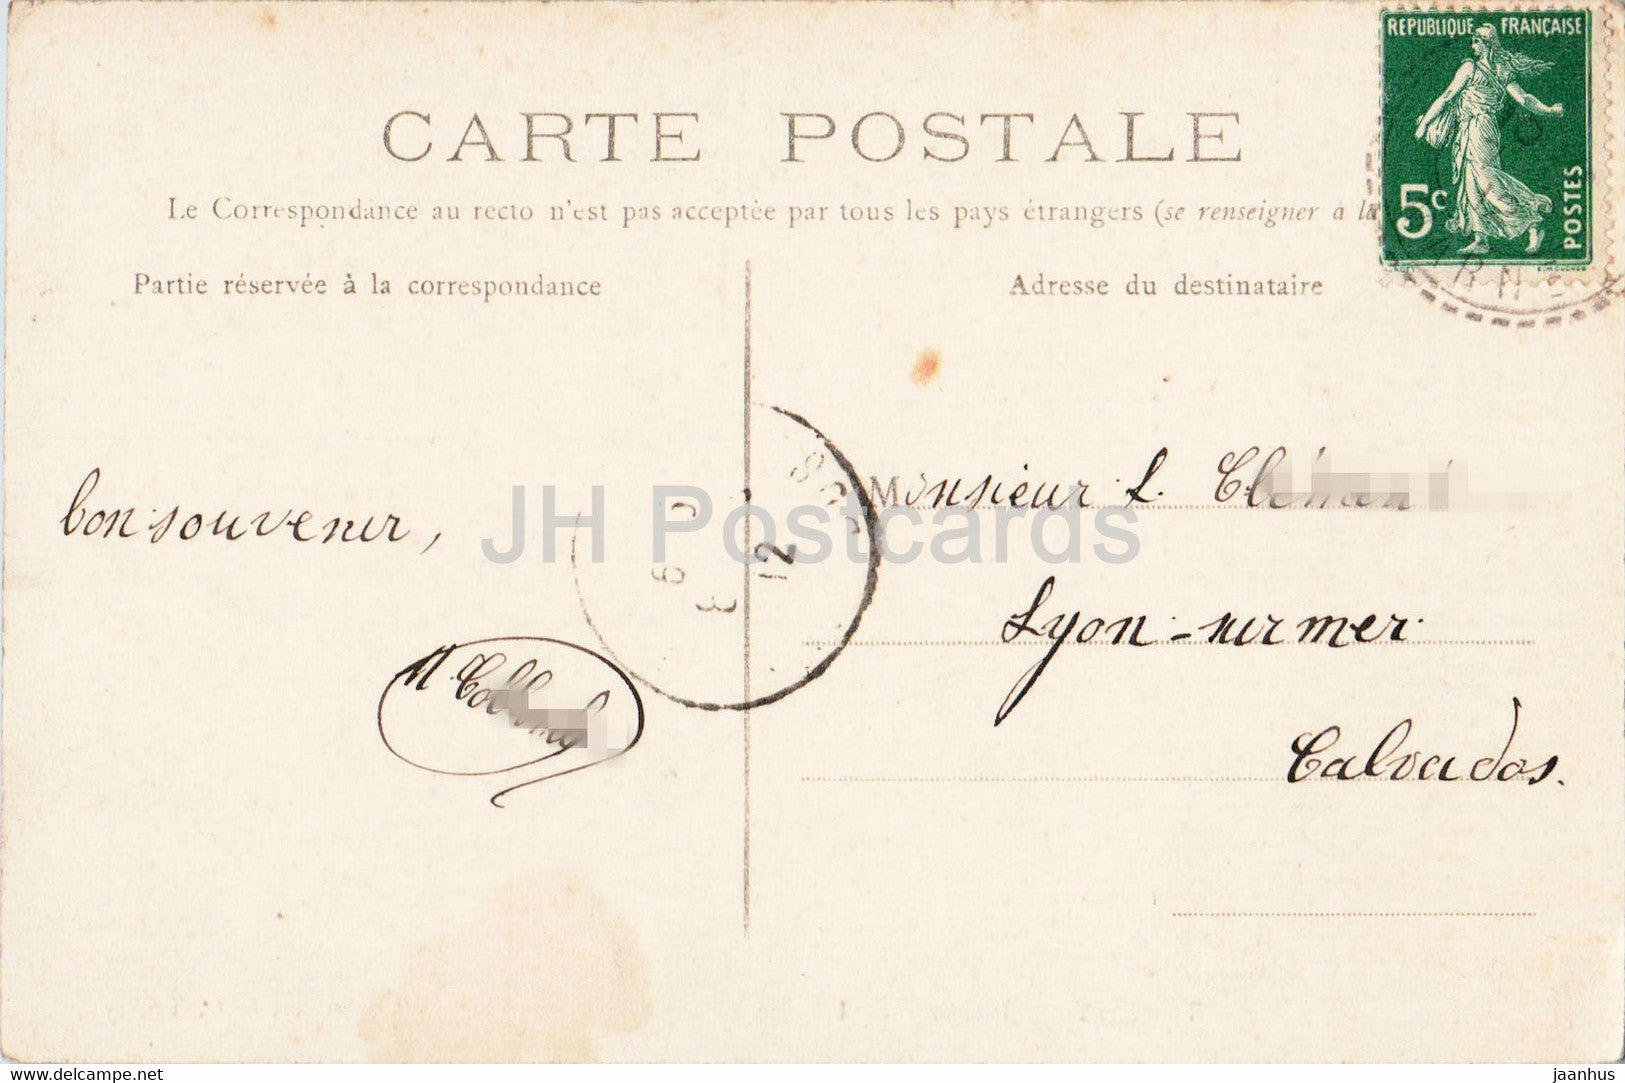 CARTE POSTALE
Le Correspondance au recto n'est pas acceptée par tous les pays étrangers (se renseigner à la
REPUBLIQUE FRANÇAISE
5c
POSTES
Partie réservée à la correspondance
Adresse du destinataire
bon souvenir,
Monsieur L.
Lyon-sur mer
Calvados.
12
JH Postcards
www.delcampe.net
jaanhus